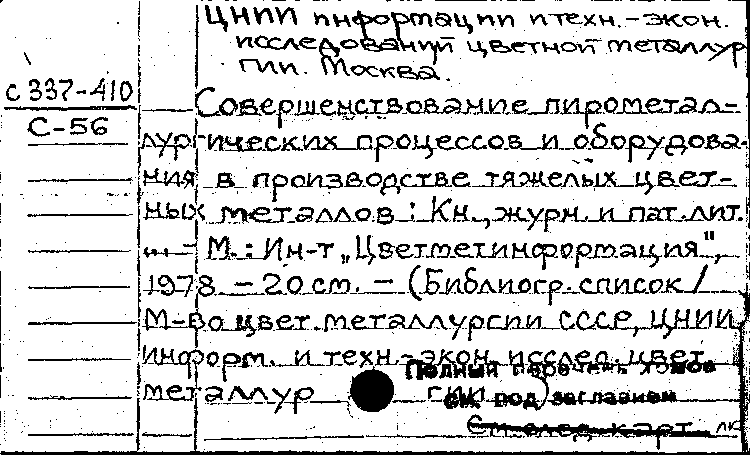 ЦНИИ информации и техн.-экон.
исследований цветной металлур
гии. Москва.
с 337-410
С-56
Совершенствование пирометал-
лургических процессов и оборудова-
ния в производстве тяжелых цвет-
ных металлов : Кн., журн. и пат. лит.
... - М. : Ин-т „Цветметинформация",
1978. - 20 см. - (Библиогр. список /
М-во цвет. металлургии СССР, ЦНИИ
информ. и техн.-экон. исслед. цвет.
металлургии)
Полный перечень томов
см. под заглавием
См. след. карт. лк